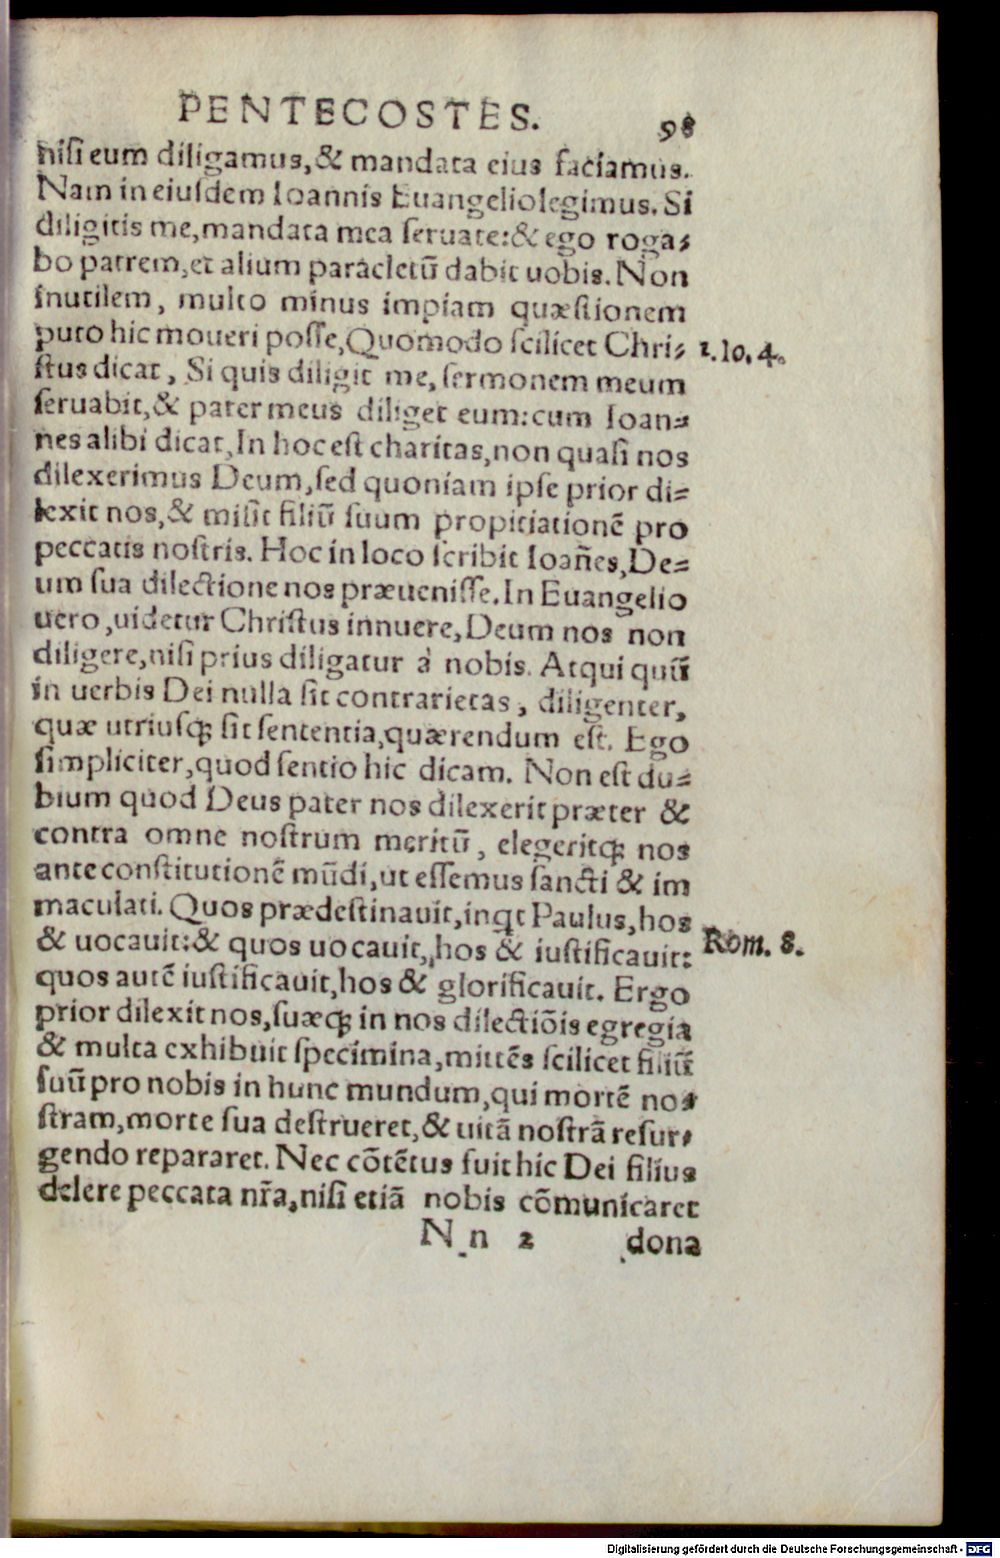 PENTECOSTES. 98
niſi eum diligamus, & mandata eius faciamus.
Nam in eiuſdem Ioannis Euangelio legimus. Si
diligitis me, mandata mea ſeruate: & ego roga⸗
bo patrem, et alium paracletū dabit uobis. Non
inutilem, multo minus impiam quæſtionem
puto hic moueri poſſe, Quomodo ſcilicet Chri⸗ 1. Io. 4.
ſtus dicat, Si quis diligit me, ſermonem meum
ſeruabit, & pater meus diliget eum: cum Ioan⸗
nes alibi dicat, In hoc eſt charitas, non quaſi nos
dilexerimus Deum, ſed quoniam ipſe prior di⸗
lexit nos, & miſit filiū ſuum propitiationē pro
peccatis noſtris. Hoc in loco ſcribit Ioañes, De⸗
um ſua dilectione nos præueniſſe. In Euangelio
uero, uidetur Chriſtus innuere, Deum nos non
diligere, niſi prius diligatur à nobis. Atqui quū
in uerbis Dei nulla ſit contrarietas, diligenter,
quæ utriuſqꝫ ſit ſententia, quærendum eſt. Ego
ſimpliciter, quod ſentio hic dicam. Non eſt du⸗
bium quod Deus pater nos dilexerit præter &
contra omne noſtrum meritū, elegeritqꝫ nos
ante conſtitutionē mūdi, ut eſſemus ſancti & im
maculati. Quos prædeſtinauit, inqt Paulus, hos
& uocauit: & quos uocauit, hos & iuſtificauit: Rom. 8.
quos autē iuſtificauit, hos & glorificauit. Ergo
prior dilexit nos, ſuæqꝫ in nos dilectiōis egregia
& multa exhibuit ſpecimina, mittēs ſcilicet filiū
ſuū pro nobis in hunc mundum, qui mortē no⸗
ſtram, morte ſua deſtrueret, & uitā noſtrā reſur⸗
gendo repararet. Nec cōtētus fuit hic Dei filius
delere peccata nr̃a, niſi etiā nobis cōmunicaret
N n 2 dona
Digitalisierung gefördert durch die Deutsche Forschungsgemeinschaft - DFG